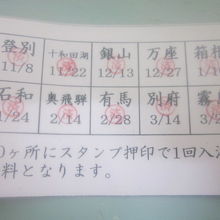 登別 十和田湖 銀山 万座 箱根
11/8 11/22 12/13 12/27 1/1
石和 奥飛騨 有馬 別府 霧島
1/24 2/14 2/28 3/14 3/2
0ヶ所にスタンプ押印で1回入浴
料となります。